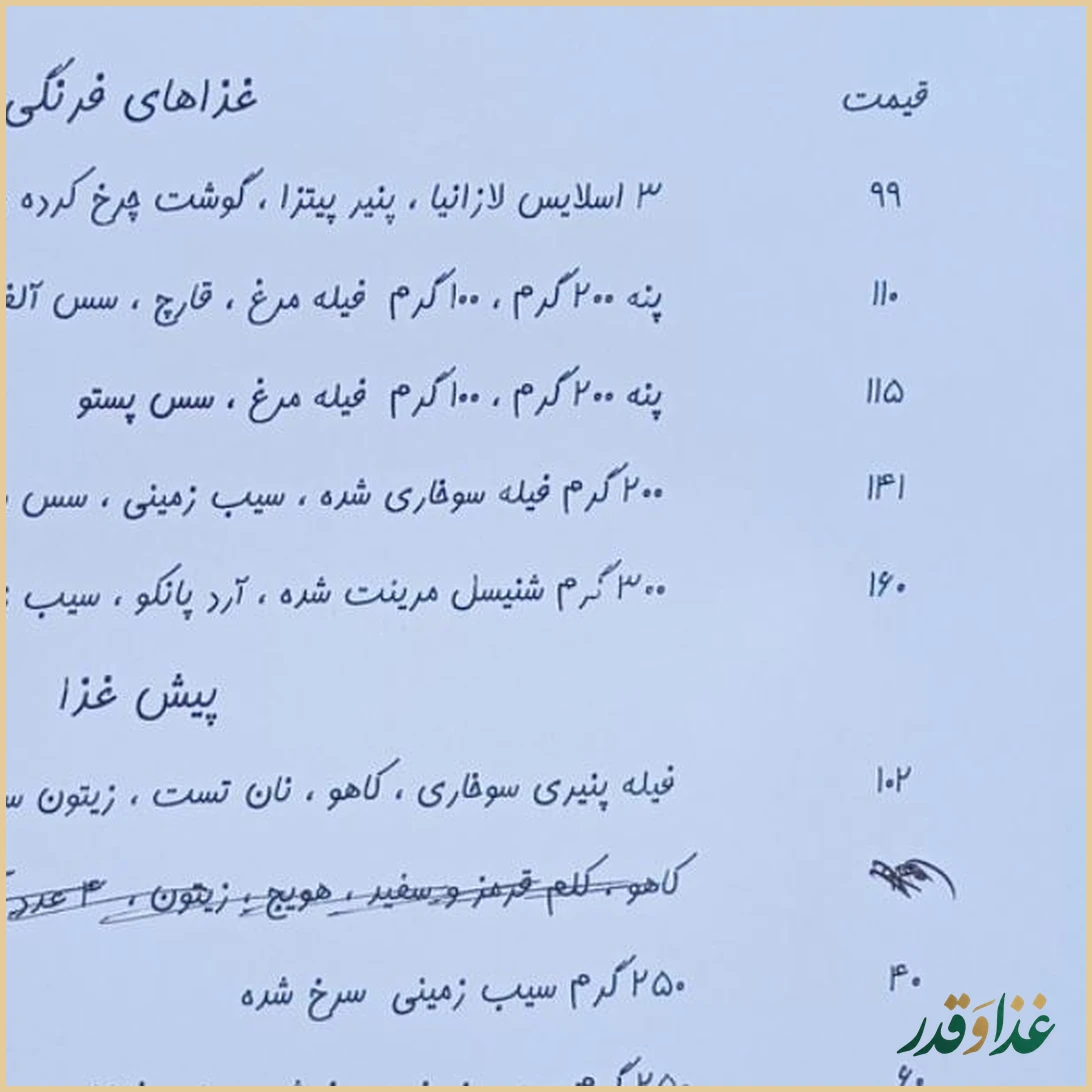 قیمت غذاهای فرنگی
۹۹ ۳ اسلایس لازانیا ، پنیر پیتزا ، گوشت چرخ کرده
۱۱۰ پنه ۲۰۰ گرم ، ۱۰۰ گرم فیله مرغ ، قارچ ، سس
۱۱۵ پنه ۲۰۰ گرم ، ۱۰۰ گرم فیله مرغ ، سس پستو
۱۴۱ ۲۰۰ گرم فیله سوخاری شده ، سیب زمینی ، سس
۱۶۰ ۳۰۰ گرم شنیسل مرینت شده ، آرد پانکو ، سیب
پیش غذا
۱۰۲ فیله پنیری سوخاری ، کاهو ، نان تست ، زیتون
کاهو ، کلم قرمز و سفید ، هویج ، زیتون ، ۴ عدد
۴۰ ۲۵۰ گرم سیب زمینی سرخ شده
۶۰ ۲۵۰ گرم
غذا وَ قدر